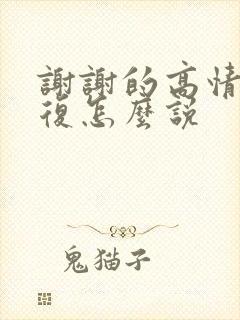 謝謝的高情
復怎麼說
鬼猫子